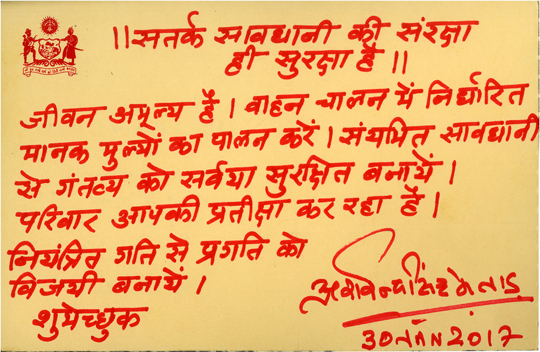 ॥ सतर्क सावधानी की संरक्षा
ही सुरक्षा है ॥
जीवन अमूल्य है । वाहन चालन में निर्धारित
मानक मुल्यों का पालन करें । संयमित सावधानी
से गंतव्य को सर्वथा सुरक्षित बनायें ।
परिवार आपकी प्रतीक्षा कर रहा है ।
नियंत्रित गति से प्रगति को
विजयी बनायें ।
शुभेच्छुक
30 JAN 2017